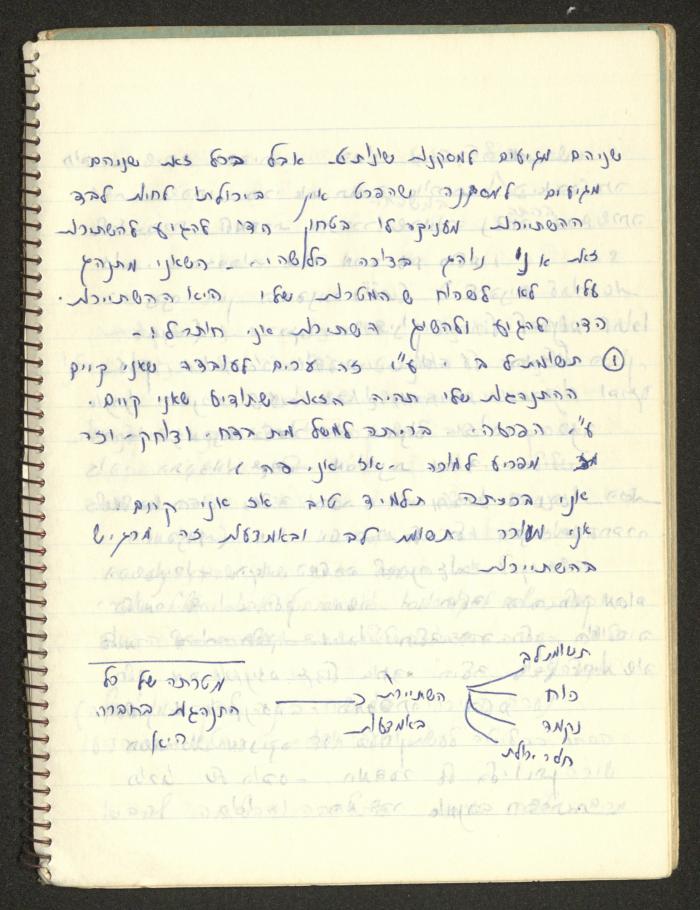 שניהם מגיעים למסקנות שונות. אבל בכל זאת שניהם
מגיעים למסקנה שהפרט אין ביכולתו לחיות לבד
ההשתייכות מעניקה לו בטחון הדרך להגיע להשתייכות
זאת אני נוהג בצורה כלשהיא. השאני מתנהג
עלי לא לשכוח שהמטרות שלי היא ההשתייכות.
הדרך להגיע ולהשיג השתייכות אני חותר לו.
① תשומת לב - ע"י זה ערים לעובדה שאני קיים
ההתנהגות שלי תהיה הזאת שתודיע שאני קיים.
ע"י הפרעה בכיתה למשל מתבדח, וצוחק וזה
מפריע למורה - אז אני פה.
אני בכיתה תלמיד טוב אז אני קיים.
אני מעורר תשומת לב ובאמצעות זה מרגיש
בהשתייכות.
מטרתה של כל
התנהגות בחברה
היא
השתייכות
באמצעות
תשומת לב
כוח
נקמה
חוסר יכולת